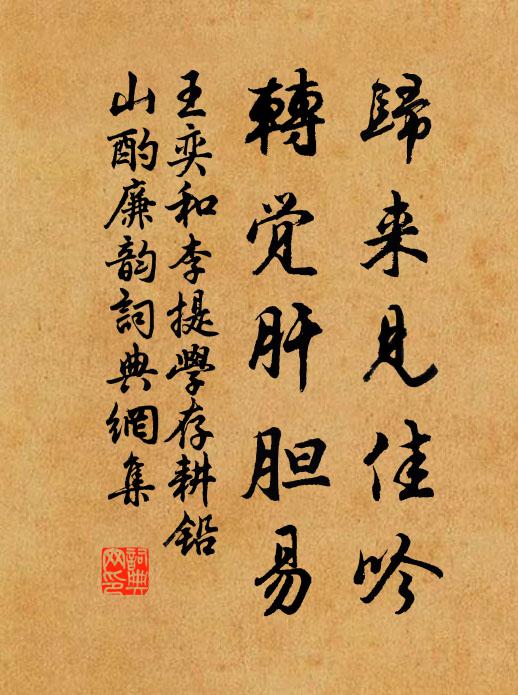 歸来見佳吟
轉覚肝胆易
王奕和李提學存耕鉛
山酌廉韵詞典網集
詞典
网印